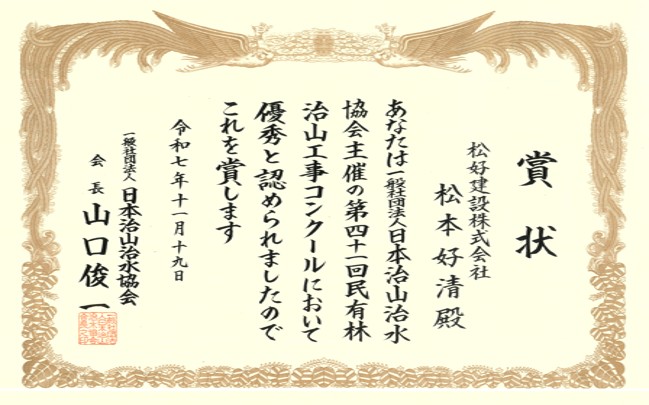 賞状
松好建設株式会社
松本好清殿
あなたは一般社団法人日本治山治水
協会主催の第四十一回民有林
治山工事コンクールにおいて
優秀と認められましたので
これを賞します
令和七年十一月十九日
一般社団法人日本治山治水協会
会長山口俊一